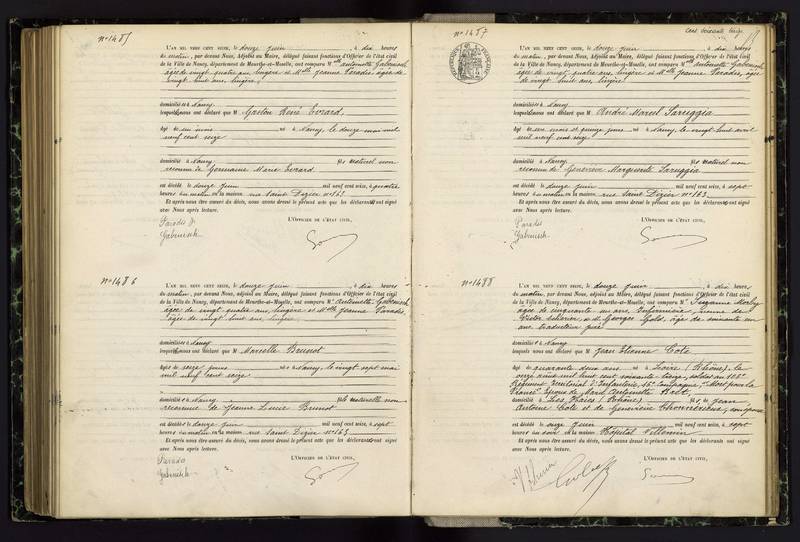 n° 1485
L'AN MIL NEUF CENT SEIZE, le douze juin, à dix heures
du matin, par devant Nous, Adjoint au Maire, délégué faisant fonctions d'Officier de l'état civil
de la Ville de Nancy, département de Meurthe-et-Moselle, ont comparu M
âgée de vingt quatre ans, lingère et Mlle Jeanne Paradis, âgée de
vingt huit ans, lingère,
domiciliés à Nancy
lesquelles nous ont déclaré que M Gaston René Evrard,
âgé de six mois né à Nancy, le douze mai mil
neuf cent seize
domicilié à Nancy fils naturel non
reconnu de Germaine Marie Evrard
est décédé le douze juin mil neuf cent seize, à quatre
heures du matin en la maison rue Saint Dizier n° 163
Et après nous être assuré du décès, nous avons dressé le présent acte que les déclarants ont signé
avec Nous après lecture.
L'OFFICIER DE L'ÉTAT CIVIL,
Paradis J.
n° 1486
L'AN MIL NEUF CENT SEIZE, le douze juin, à dix heures
du matin, par devant Nous, adjoint au Maire, délégué faisant fonctions d'Officier de l'état civil
de la Ville de Nancy, département de Meurthe-et-Moselle, ont comparu M Antoinette
âgée de vingt quatre ans, lingère et Mlle Jeanne Paradis,
âgée de vingt huit ans, lingère
domiciliés à Nancy
lesquelles nous ont déclaré que M Marcelle Brunot
âgée de seize jours née à Nancy, le vingt sept mai
mil neuf cent seize
domiciliée à Nancy fille naturelle non
reconnue de Jeanne Brunot
est décédée le douze juin mil neuf cent seize, à sept
heures du matin en la maison rue Saint Dizier n° 163
Et après nous être assuré du décès, nous avons dressé le présent acte que les déclarants ont signé
avec Nous après lecture.
L'OFFICIER DE L'ÉTAT CIVIL,
Paradis
n° 1487
L'AN MIL NEUF CENT SEIZE, le douze juin, à dix heures
du matin, par devant Nous, Adjoint au Maire, délégué faisant fonctions d'Officier de l'état civil
de la Ville de Nancy, département de Meurthe-et-Moselle, ont comparu Mlle Antoinette
âgée de vingt quatre ans, lingère et Mlle Jeanne Paradis, âgée
de vingt huit ans, lingère
domiciliés à Nancy
lesquelles nous ont déclaré que M André Marcel Saruggia
âgé de mois et quinze jours né à Nancy, le vingt huit avril
mil neuf cent seize
domicilié à Nancy fils naturel non
reconnu de Geneviève Marguerite Saruggia
est décédé le douze juin mil neuf cent seize, à sept
heures du matin en la maison rue Saint Dizier n° 163
Et après nous être assuré du décès, nous avons dressé le présent acte que les déclarants ont signé
avec Nous après lecture.
L'OFFICIER DE L'ÉTAT CIVIL,
Paradis
n° 1488
L'AN MIL NEUF CENT SEIZE, le douze juin, à dix heures
du matin, par devant Nous, adjoint au Maire, délégué faisant fonctions d'Officier de l'état civil
de la Ville de Nancy, département de Meurthe-et-Moselle, ont comparu M Suzanne
âgée de cinquante un ans, Infirmière, veuve de
Victor et M. Georges, âgé de soixante un
ans, traducteur juré
domiciliés à Nancy
lesquels nous ont déclaré que M Jean Etienne Cote
âgé de quarante deux ans né à Loire (Rhône), le
onze août mil huit cent soixante treize, soldat au 105e
Régiment territorial d'Infanterie, 15e Compagnie, "Mort pour la
France" époux de Marie Antoinette
domicilié à Les Haies (Rhône) fils de Jean
Antoine Cote et de Geneviève
est décédé le onze juin mil neuf cent seize, à sept
heures du soir en la maison Hôpital Villemin
Et après nous être assuré du décès, nous avons dressé le présent acte que les déclarants ont signé
avec Nous après lecture.
L'OFFICIER DE L'ÉTAT CIVIL,